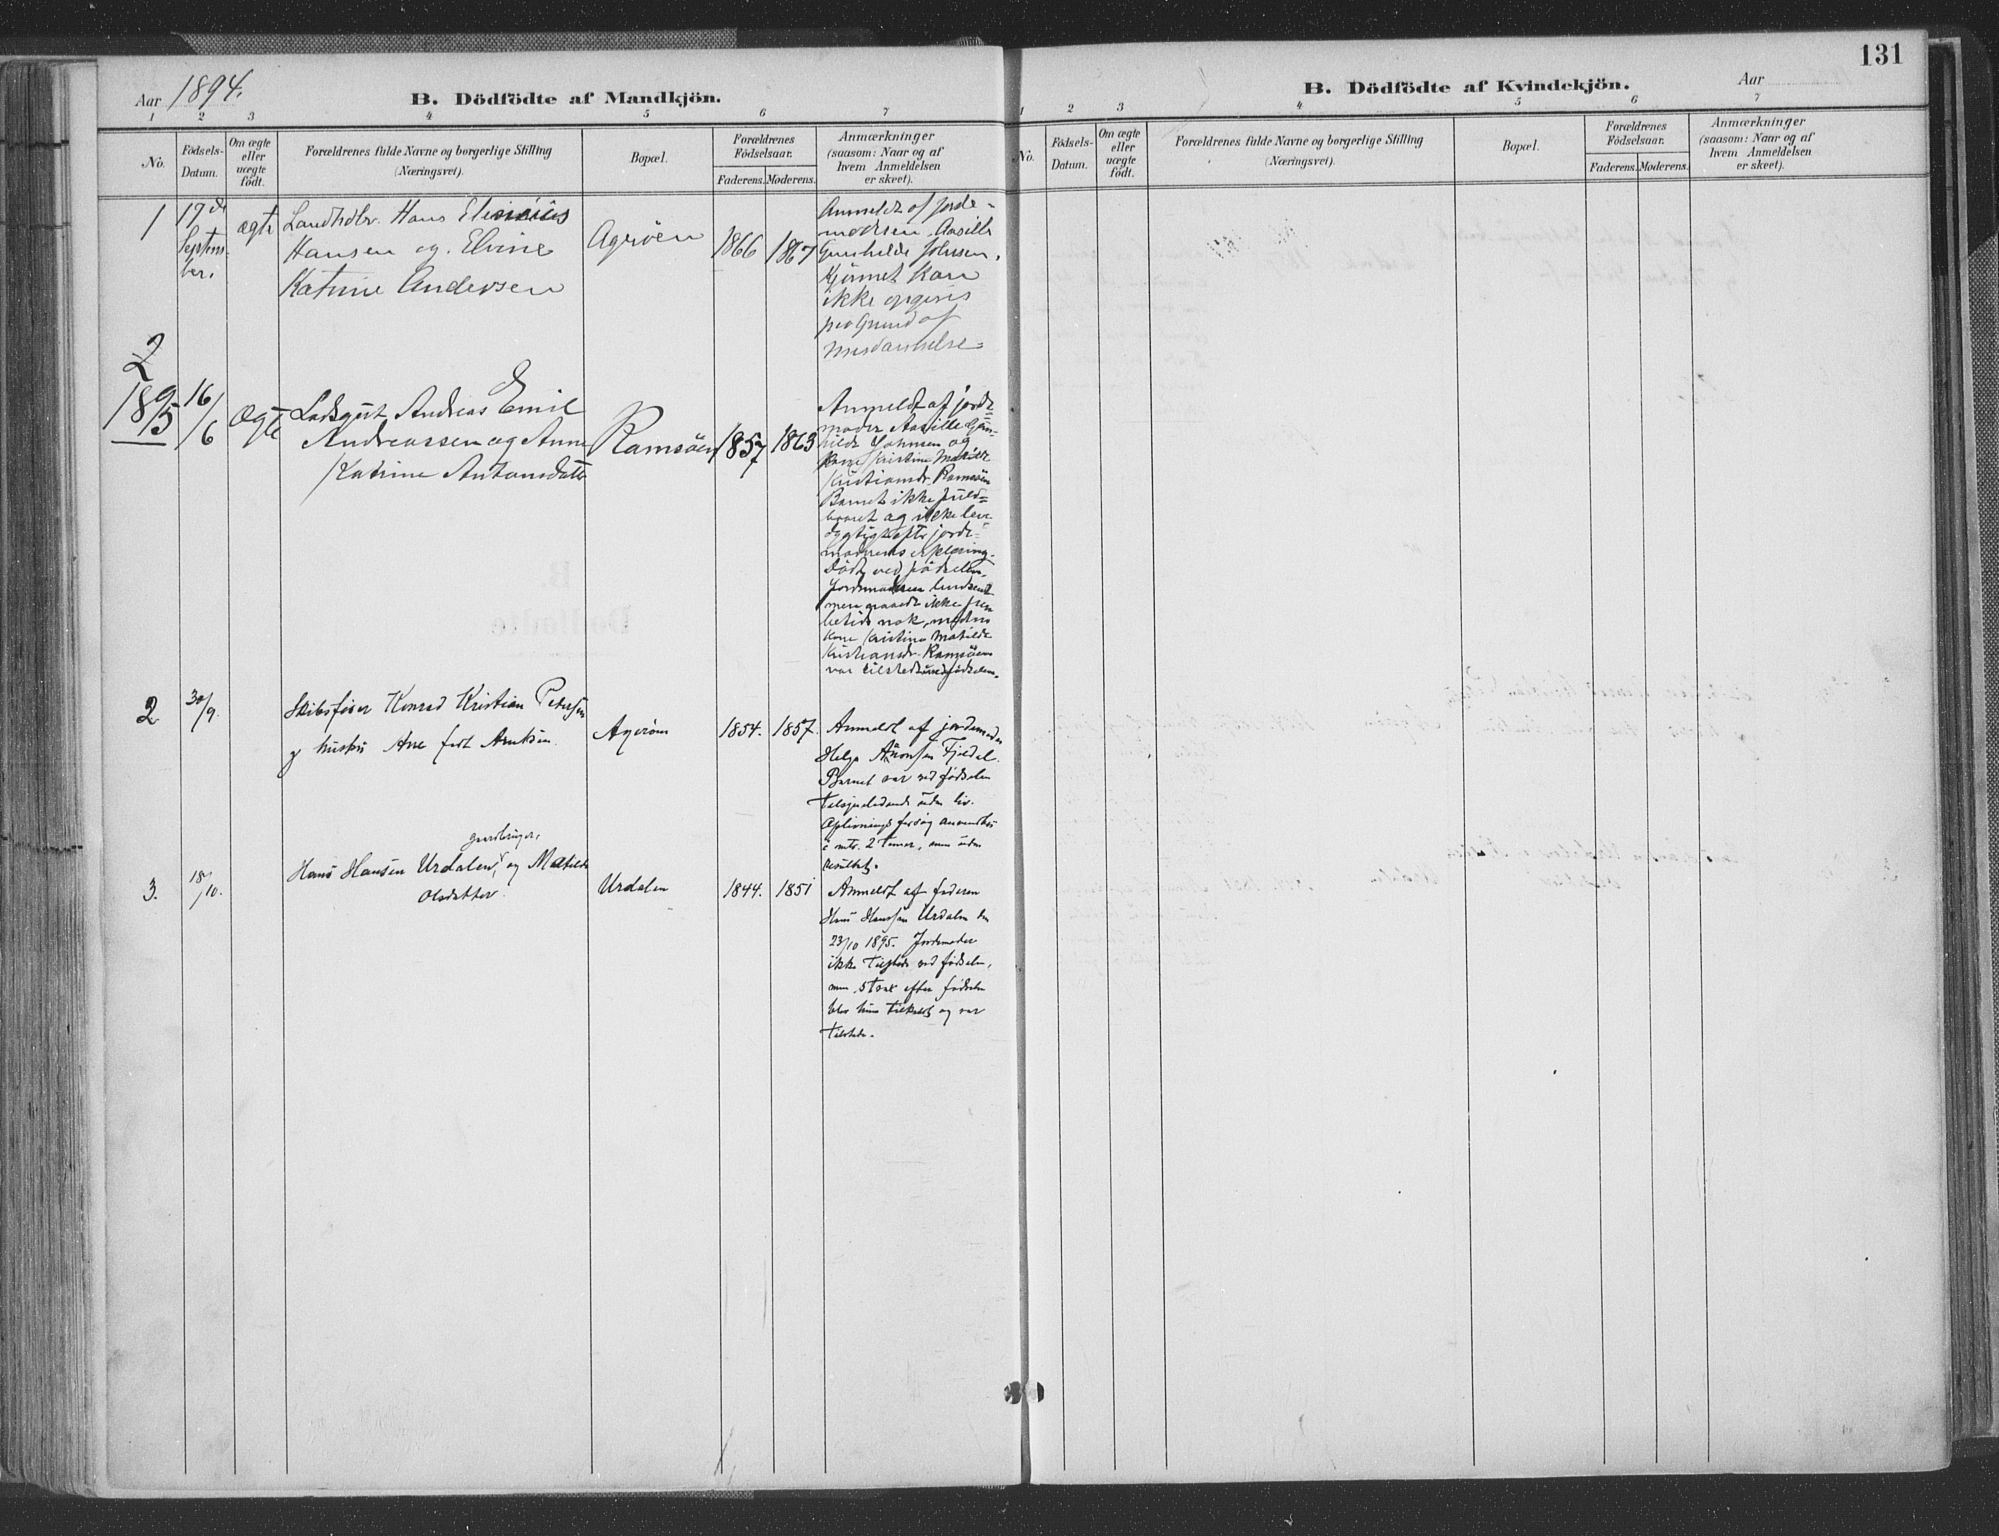 131
Aar 1894.
B. Dödfödte af Mandkjön.
1 2 3 4 5 6 7
No.
Födsels-Datum.
Om ægte eller uægte födt.
Forældrenes fulde Navne og borgerlige Stilling (Næringsvei).
Bopæl.
Forældrenes Födselsaar.
Faderens. Moderens.
Anmærkninger (saasom: Naar og af hvem Anmeldelsen er skeet).
1
17de
Septem-
ber.
ægte
Landhdlr. Hans
Hansen og Elvine
Katrine Andersen
Agerøen
1866 1867
Anmeldt af Jorde-
moderen Aasille
Gunhilde Johnsen.
Kjönnet kan
ikke opgives
paa Grund af
Misdannelse
2
1895
16/6
Ægte
Lodsgut Andreas Emil
Andreassen og Anne
Katrine Antonsdatter
Ramsöen
1857 1863
Anmeldt af jorde=
moder Aasille Gun-
hilde Johnsen og
Kone Kristine Matilde
Kristiansdr. Ramsöen
Barnet ikke fuld=
baaret og ikke leve
dygtigt efter jorde-
moderens erklæring.
Död ved födselen.
Jordemoderen
men naaede ikke frem
betids nok, medens
Kone Kristine Matilde
Kristiansdr. Ramsöen
var tilstede ved födselen.
2
30/9.
Skibsfører Konrad Kristian Petersen
og hustru Ane født
Agerøen
1854. 1857.
Anmeldt af jordemoder
Helga Aronsen Fjeldal.
Barnet var ved födselen
tilsyneladende uden liv.
Oplivningsforsøg anvendtes
i mtr. 2 timer, men uden
resultat.
3.
18/10.
gaardbruger,
Hans Hansen Urdalen, og Matilde
Olsdatter.
Urdalen
1844. 1851
Anmeldt af faderen
Hans Hansen Urdalen den
23/10 1895. Jordemoder
ikke tilstede ved fødselen,
men strax efter fødselen
blev hun tilkaldt og var
tilstede.
B. Dödfödte af Kvindekjön.
Aar
1 2 3 4 5 6 7
No.
Födsels-Datum.
Om ægte eller uægte födt.
Forældrenes fulde Navne og borgerlige Stilling (Næringsvei).
Bopæl.
Forældrenes Födselsaar.
Faderens. Moderens.
Anmærkninger (saasom: Naar og af hvem Anmeldelsen er skeet).